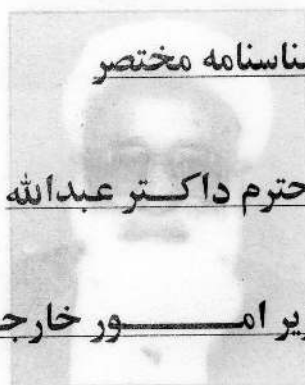 ناسنامه مختصر
حترم داکتر عبدالله
یر امور خارجـ